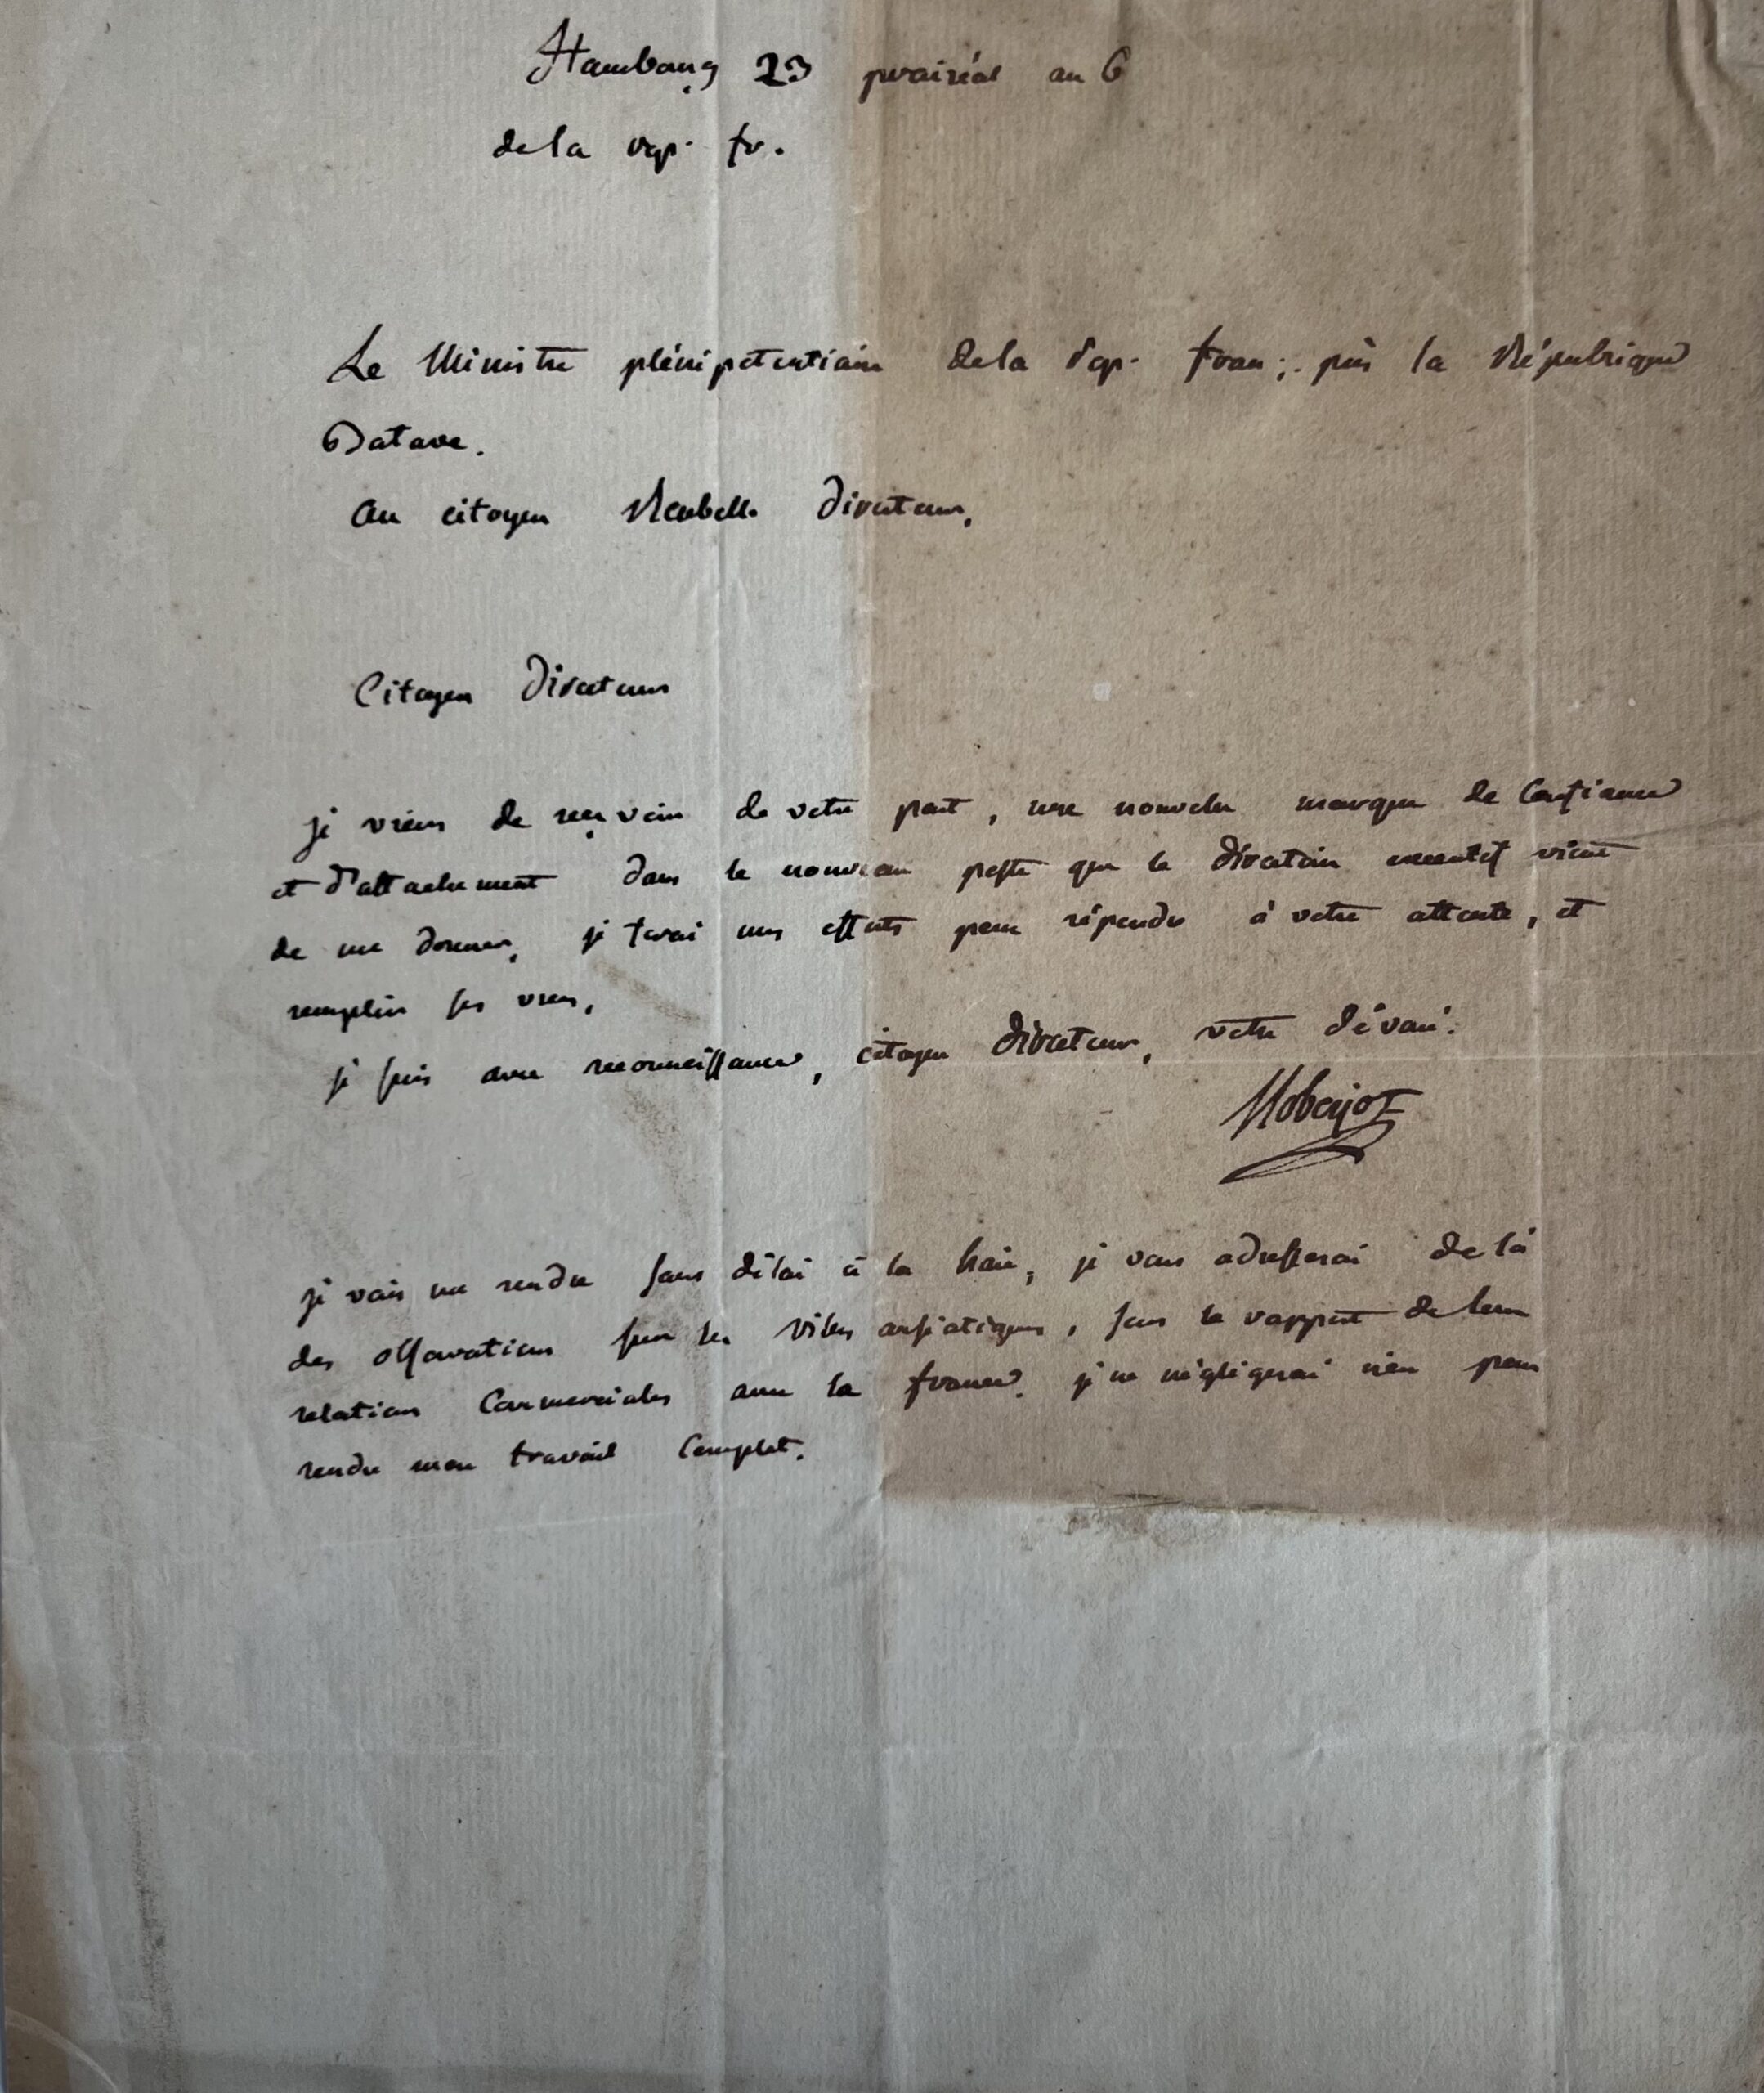 Hambourg 23 prairéal an 6
de la rep. fr.
Le Ministre plénipotentiaire de la rep. fran: près la République
Batave.
au citoyen Reubell Directeur.
Citoyen Directeur
je viens de reçevoir de votre part, une nouvelle marque de confiance
et d'attachement dans le nouveau poste que le directoire executif vient
de me donner, je ferai mes efforts pour répondre à votre attente, et
remplir ses vues.
je suis avec reconnaissance, citoyen directeur, votre dévoué.
Roberjot
je vais me rendre sans délai à la haie, je vous adresserai de là
des observations sur les villes anséatiques, sous le rapport de leur
relations commerciales avec la france. je ne négligerai rien pour
rendre mon travail complet.